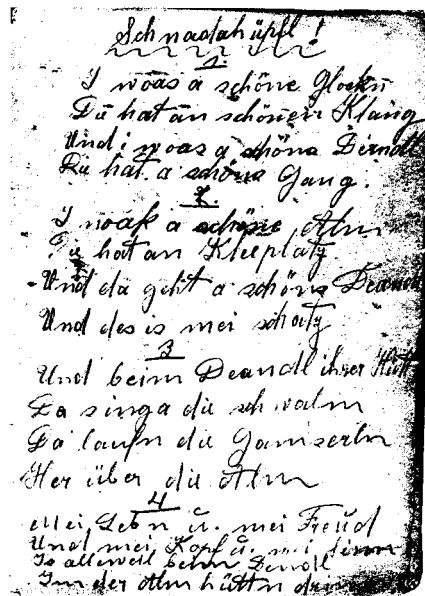 Schnadahüpfl!
1.
I woas a schöne Glockn
Dü hat an schönen Klang
Und i woas a schöne Dirndl
Dü hat a schöne Gang.
2.
I woaß a schöne Alm
Dü hat an Kleeplatz
Und da geht a schöns Deandl
Und des is mei schatz
3
Und beim Deandl ihrer Hütt
Da singa die schwalm
Da laufn die Gamserln
Her über die Alm
4
Mei Leb'n u. mei Freud
Und mei Kopf u. mei
Is alleweil beim Dirndl
In der Alm hüttn drin